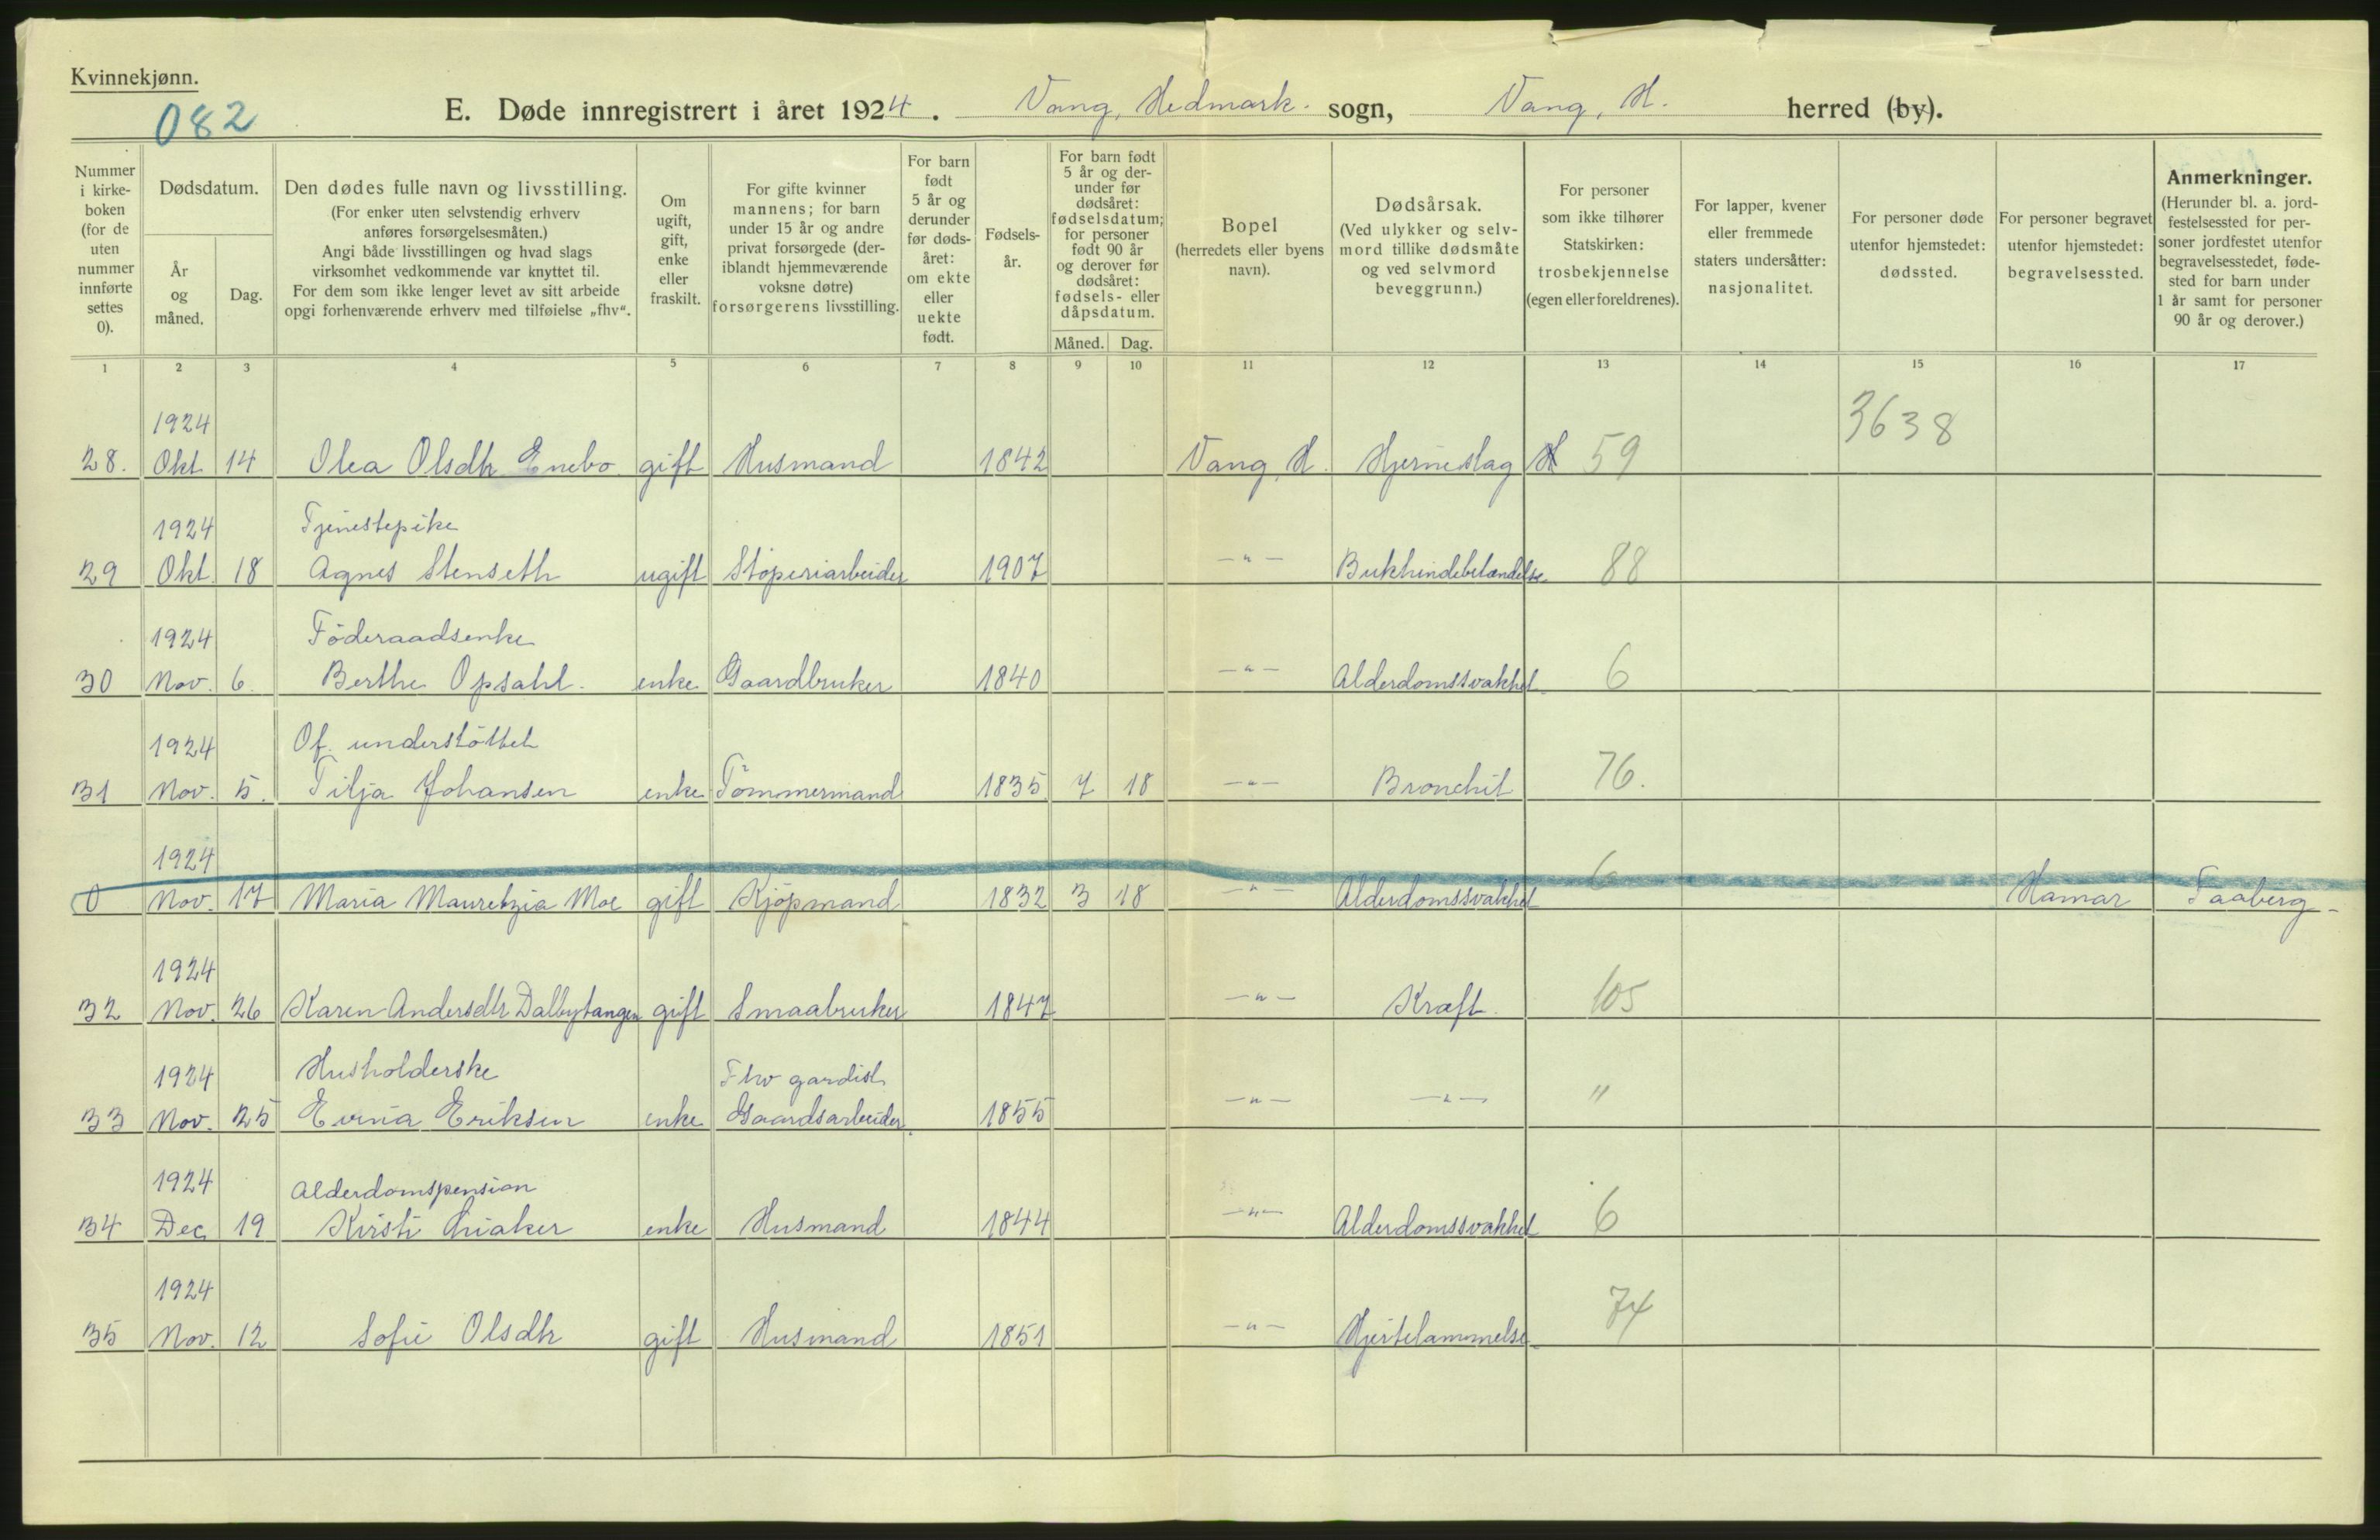 Kvinnekjønn.
082
E. Døde innregistrert i året 1924. Vang, Hedmark. sogn, Vang, H. herred (by).
Nummer i kirke-boken (for de uten nummer innførte settes 0).
Dødsdatum.
År og måned.
Dag.
Den dødes fulle navn og livsstilling.
(For enker uten selvstendig erhverv anføres forsørgelsesmåten.)
Angi både livsstillingen og hvad slags virksomhet vedkommende var knyttet til.
For dem som ikke lenger levet av sitt arbeide opgi forhenværende erhverv med tilføielse „fhv“.
Om ugift, gift, enke eller fraskilt.
For gifte kvinner mannens; for barn under 15 år og andre privat forsørgede (der-iblandt hjemmeværende voksne døtre) forsørgerens livsstilling.
For barn født 5 år og derunder før døds-året: om ekte eller uekte født.
Fødsels-år.
For barn født 5 år og der-under før dødsåret: fødselsdatum; for personer født 90 år og derover før dødsåret: fødsels- eller dåpsdatum.
Måned. Dag.
Bopel (herredets eller byens navn).
Dødsårsak. (Ved ulykker og selv-mord tillike dødsmåte og ved selvmord beveggrunn.)
For personer som ikke tilhører Statskirken: trosbekjennelse (egen eller foreldrenes).
For lapper, kvener eller fremmede staters undersåtter: nasjonalitet.
For personer døde utenfor hjemstedet: dødssted.
For personer begravet utenfor hjemstedet: begravelsessted.
Anmerkninger. (Herunder bl. a. jord-festelsessted for per-soner jordfestet utenfor begravelsesstedet, føde-sted for barn under 1 år samt for personer 90 år og derover.)
1 2 3 4 5 6 7 8 9 10 11 12 13 14 15 16 17
1924 3638
28. Okt. 14 Olea Olsdtr Enebo gift Husmand 1842 Vang, H. Hjerneslag 59
1924 Tjenestepike
29 Okt. 18 Agnes Stenseth ugift Støperiarbeider 1907 -"- Bukhindebetændelse 88
1924 Föderaadsenke
30 Nov. 6. Berthe Opsahl. enke Gaardbruker 1840 -"- Alderdomssvakhet 6
1924 Of. understöttet
31 Nov. 5. Tilja Johansen enke Tömmermand 1835 7 18 -"- Bronchit 76.
1924
0 Nov. 17 Maria Mauretzia Moe gift Kjöpmand 1832 3 18 -"- Alderdomssvakhet 6 Hamar Faaberg-
1924
32 Nov. 26 Karen Andersdtr Dalbytangen gift Smaabruker 1847 -"- Kræft. 105
1924 Husholderske Fhv gardist
33 Nov. 25 Evina Eriksen enke Gaardsarbeider. 1855 -"- -"- "
1924 Alderdomspension
34 Dec. 19 Kirsti enke Husmand 1844 -"- Alderdomssvakhet 6
1924
35 Nov. 12 Sofie Olsdtr gift Husmand 1851 -"- Hjertelammelse 74